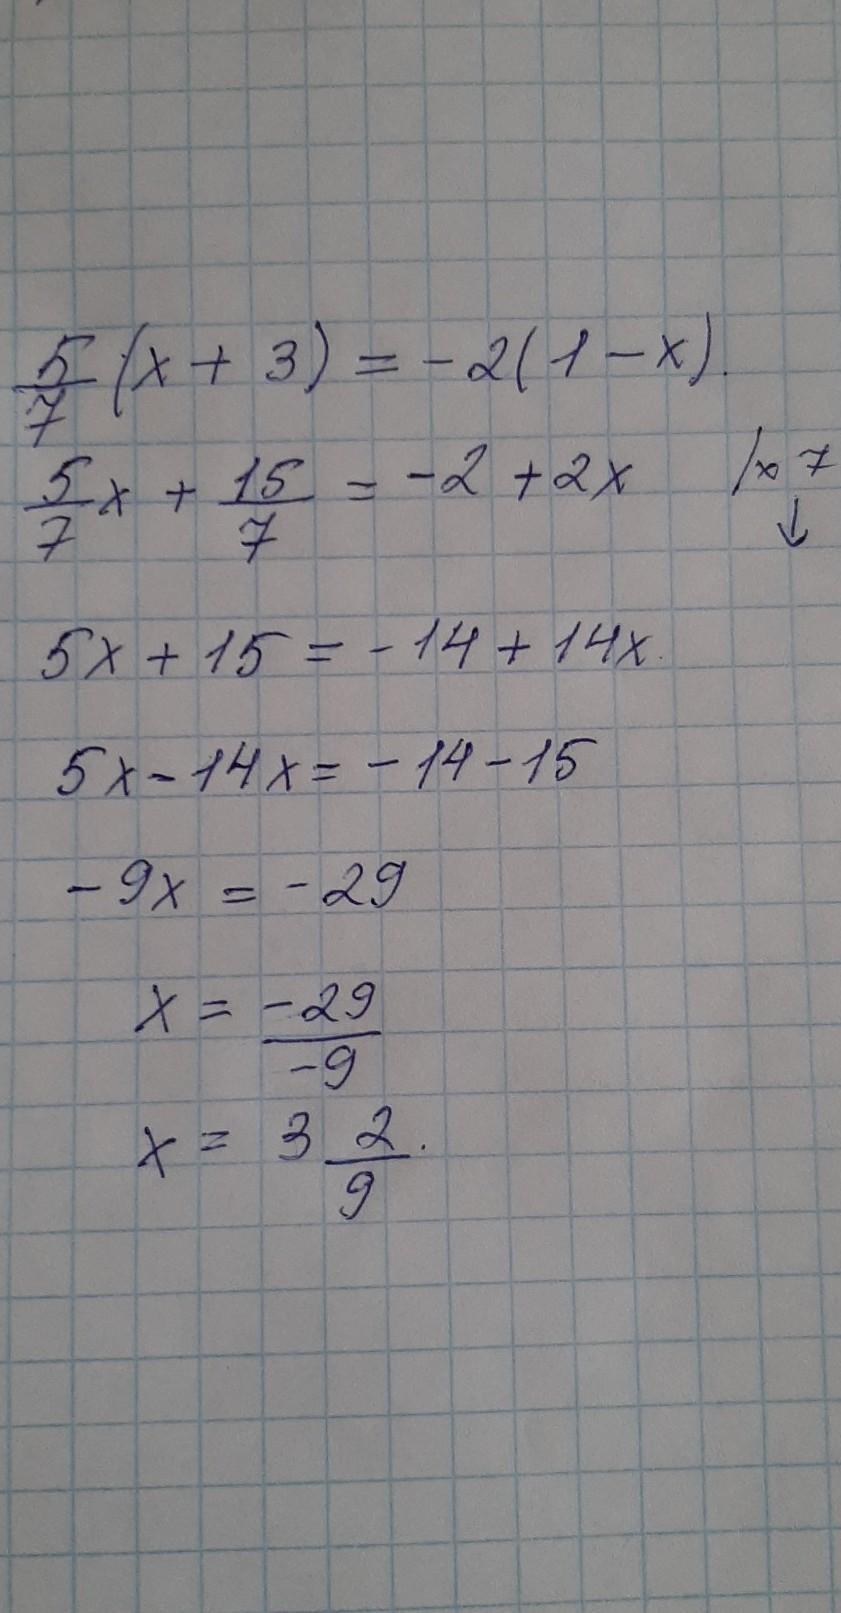 5/7 (x + 3) = -2(1 - x).
5/7 x + 15/7 = -2 + 2x /x 7 ↓
5x + 15 = -14 + 14x.
5x - 14x = -14 - 15
-9x = -29
x = -29/-9
x = 3 2/9.